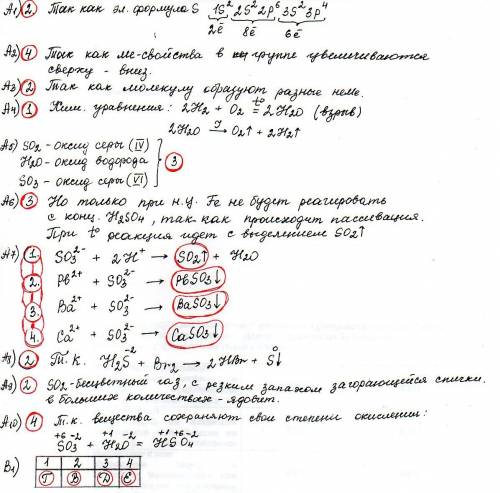 A1) 2 Так как эл. формула S 1S² 2S² 2p⁶ 3S² 3p⁴
2ē 8ē 6ē
A2) 4 Так как ме-свойства в группе увеличиваются
сверху - вниз.
A3) 2 Так как молекулу образуют разные неме.
A4) 1 Хим. уравнения: 2H₂ + O₂ t°= 2H₂O (взрыв)
2H₂O → O₂↑ + 2H₂↑
A5) SO₂ - оксид серы (IV)
H₂O - оксид водорода } 3
SO₃ - оксид серы (VI)
A6) 3 Но только при н.у. Fe не будет реагировать
с конц. H₂SO₄, так как происходит пассивация.
При t° реакция идет с выделением SO₂↑
A7) 1. SO₃²⁻ + 2H⁺ → SO₂↑ + H₂O
2. Pb²⁺ + SO₃²⁻ → PbSO₃↓
3. Ba²⁺ + SO₃²⁻ → BaSO₃↓
4. Ca²⁺ + SO₃²⁻ → CaSO₃↓
A8) 2 Т.к. H₂S⁻² + Br₂ → 2HBr + S⁰↓
A9) 2 SO₂-бесцветный газ, с резким запахом загорающейся спички.
в больших количествах - ядовит.
A10) 4 Т.к. вещества сохраняют свои степени окисления:
+6 -2 +1 -2 +1 +6 -2
SO₃ + H₂O = HSO₄
B1) 1 2 3 4
Г В Д Е